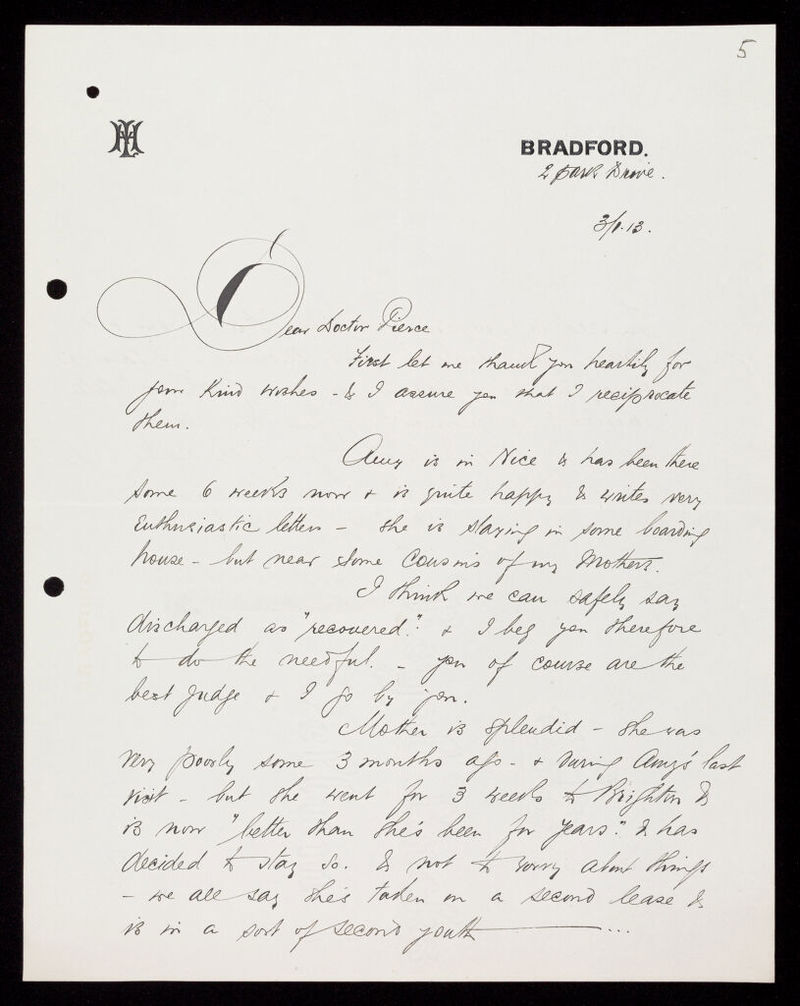 5
BRADFORD.
2 Park Drive.
3/1.13.
Dear Doctor Pierce
First let me thank you heartily for
your kind wishes - & I assure you that I reciprocate
them.
Amy is in Nice & has been there
some 6 weeks now & is quite happy & writes very
enthusiastic letters - she is staying in some boarding
house - but near some cousins of my Mothers.
I think we can safely say
discharged as "recovered". & I beg you therefore
to do the needful. - you of course are the
best judge & I go by you.
Mother is splendid - she was
very poorly some 3 months ago - & during Amy's last
visit - but she went for 3 weeks to Brighton &
is now "better than she's been for years". & has
decided to stay so. & not to worry about things
- we all say she's taken on a second lease &
is in a sort of second youth ...